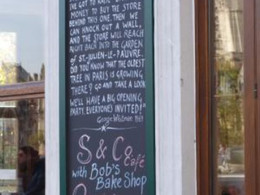 MONEY TO BUY THE STORE
BEHIND THIS ONE THEN WE
CAN KNOCK OUT A WALL,
AND THE STORE WILL REACH
RIGHT BACK INTO THE GARDEN
OF ST-JULIEN-LE PAUVRE.
DID YOU KNOW THAT THE OLDEST
TREE IN PARIS IS GROWING
THERE? GO AND TAKE A LOOK
WE'LL HAVE A BIG OPENING
PARTY. EVERYONE'S INVITED!"
George Whitman
S & Co Café
with Bob's
Bake Shop